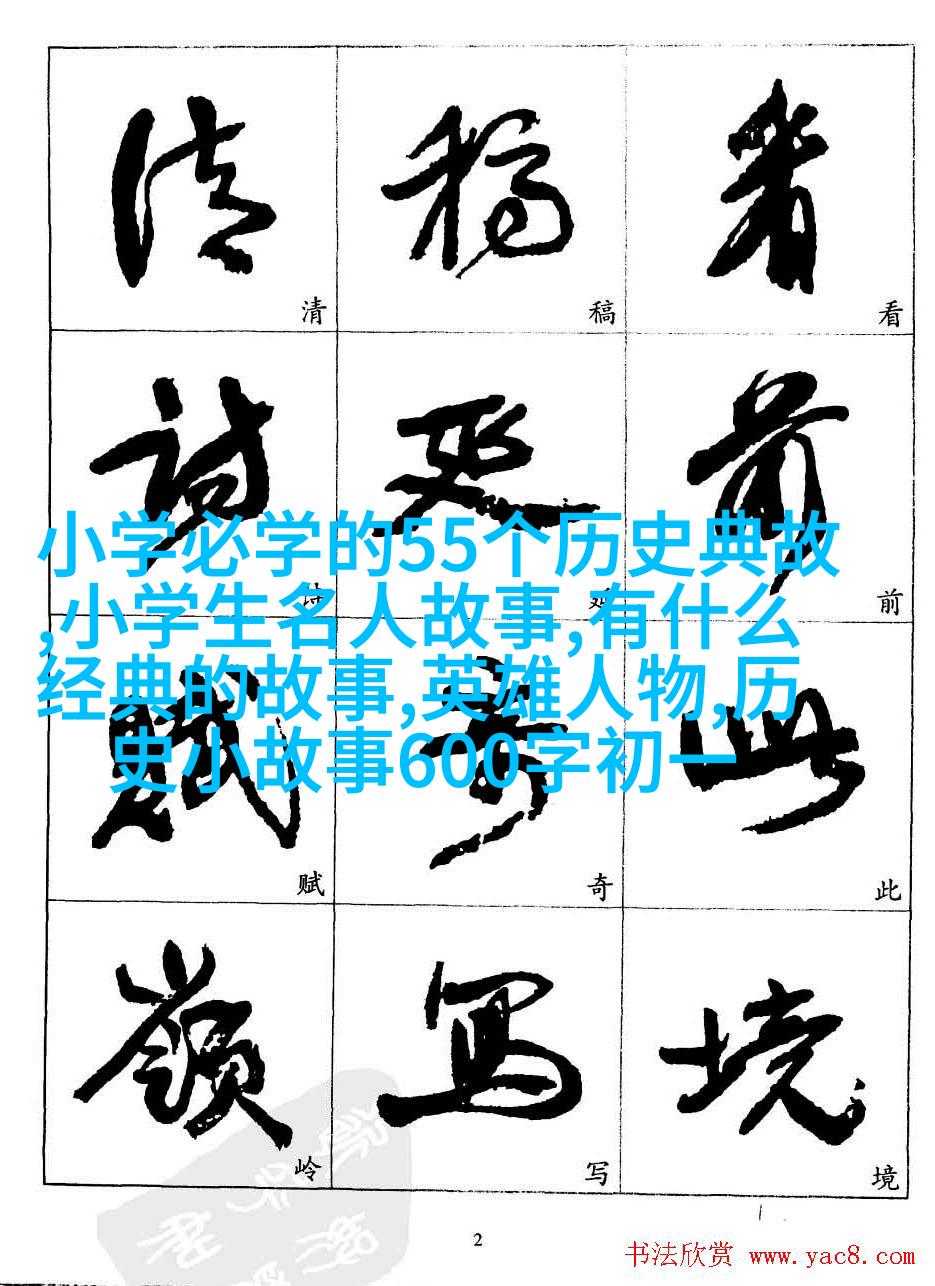 清 稿 看
诗 延 前
小学必学的55个历史典故
,小学生名人故事,有什么
经典的故事,英雄人物,历
史小故事600字初一
赋 奇 此
岭 写 境
2
书法欣赏 www.yac8.com